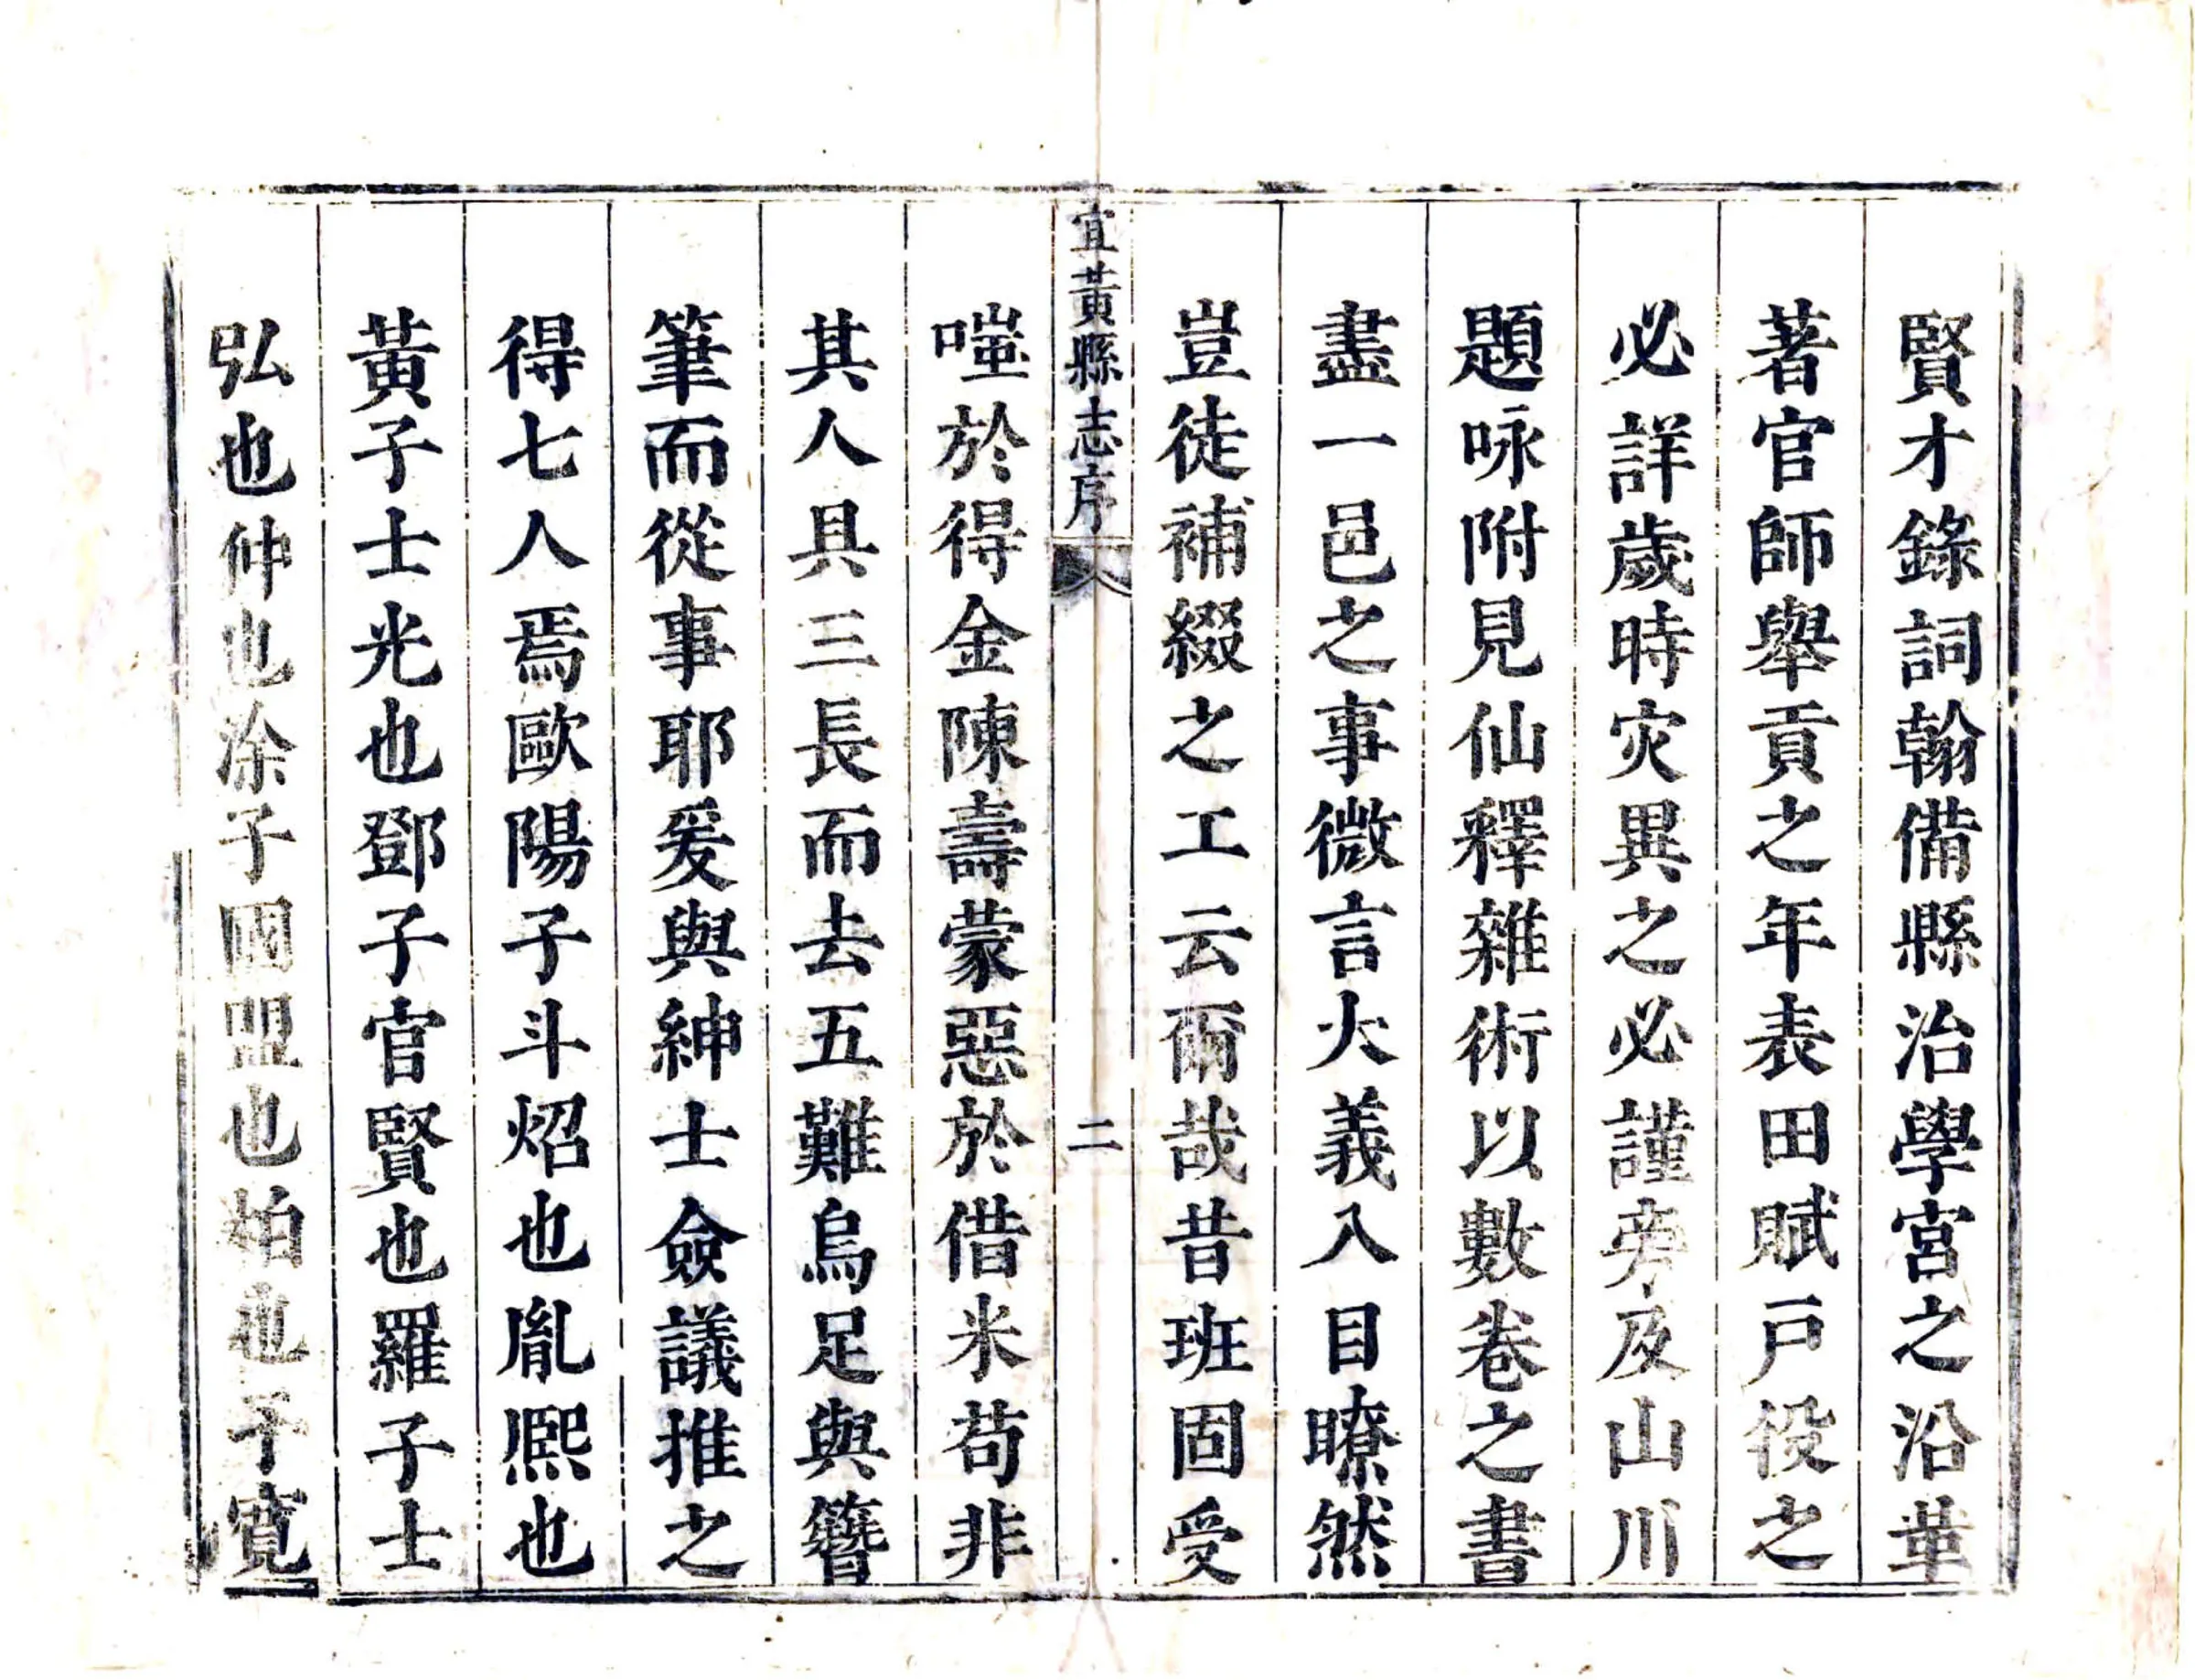 賢才錄詞翰備縣治學宮之沿革
著官師舉貢之年表田賦戸役之
必詳歲時灾異之必謹旁及山川
題咏附見仙釋雜術以數卷之書
盡一邑之事微言大義入目瞭然
豈徒補綴之工云爾哉昔班固受
宜黃縣志序
二
嗤於得金陳壽蒙惡於借米苟非
其人具三長而去五難烏足與簪
筆而從事耶爰與紳士僉議推之
得七人焉歐陽子斗炤也胤熈也
黃子士光也鄧子官賢也羅子士
弘也仲也涂子國盟也柏也予寬